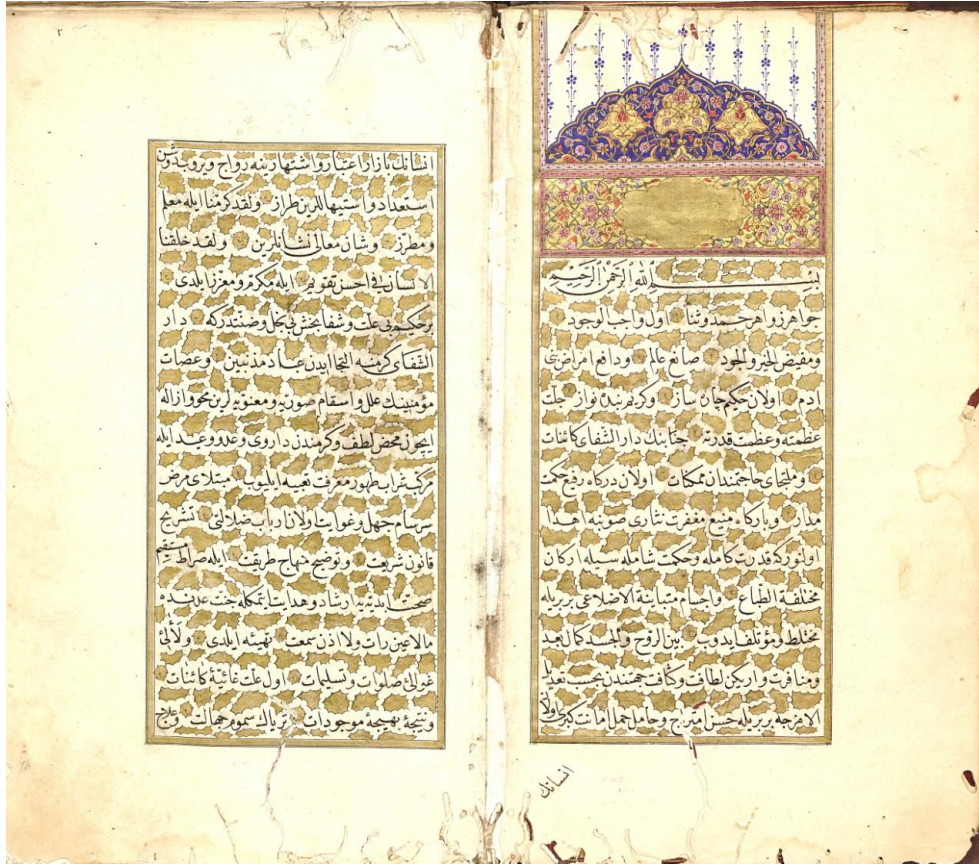 بسم الله الرحمن الرحيم
جواهر زواهر حمد و ثنا اول واجب الوجود
ومفيض الخير والجود صانع عالم ودافع امراض بنى
ادم اولان حكيم جان ساز وكريم بنده نواز جلت
عظمته وعظمت قدرته جنابنك دار الشفاى كائنات
وملجاى حاجتمندان ممكنات اولان دركاه رفيع حكمت
مدار وباركاه منيع مغفرت نثارى صوبنه اهدا
اولنور كه قدرت كامله وحكمت شامله سيله اركان
مختلفة الطباع واجسام متباينة الاضلاعى بربريله
مختلط ومؤتلف ايدوب بين الروح والجسد كمال بعد
ومنافرت وار يكن لطافت وكثافت جهتندن بحسب تعديل
الامزجه بربريله حسن امتزاج وحامل حمل امانت كبرى اولان
انسانك
انسانك بازار اعتبار واشتهارينه رواج ويروب دوش
استعداد واستيهاللرين طراز ولقد كرمنا ايله معلم
ومطرز وشان معالى نشانلرين ولقد خلقنا
الانسان فى احسن تقويم ايله مكرم ومعزز ايلدى
بر حكيم بى علت وشفا بخش بى بخل وضنتدر كه دار
الشفاى كرمنه التجا ايدن عباد مذنبين وعصات
مؤمنينك علل واسقام صوريه ومعنويه لرين محو وازاله
ايچون محض لطف وكرمندن داروى وعد ووعيد ايله
مركب شراب طهور معرفت تعبيه ايليوب مبتلاى مرض
سرسام جهل وغوايت اولان ارباب ضلالتى تشريح
قانون شريعت وتوضيح منهاج طريقت ايله صراط مستقيم
صحت ابديه يه ارشاد وهدايت ايتمكله جنت عدنده
مالا عين رات ولا اذن سمعت تهيئه ايلدى ولآلئ
غوالئ صلوات وتسليمات اول علت غائيۀ كائنات
ونتيجۀ بهيجۀ موجودات ترياك سموم جهالت وعلاج